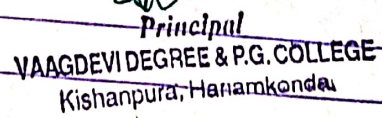 Principal
VAAGDEVI DEGREE & P.G. COLLEGE
Kishanpura, Hanamkonda